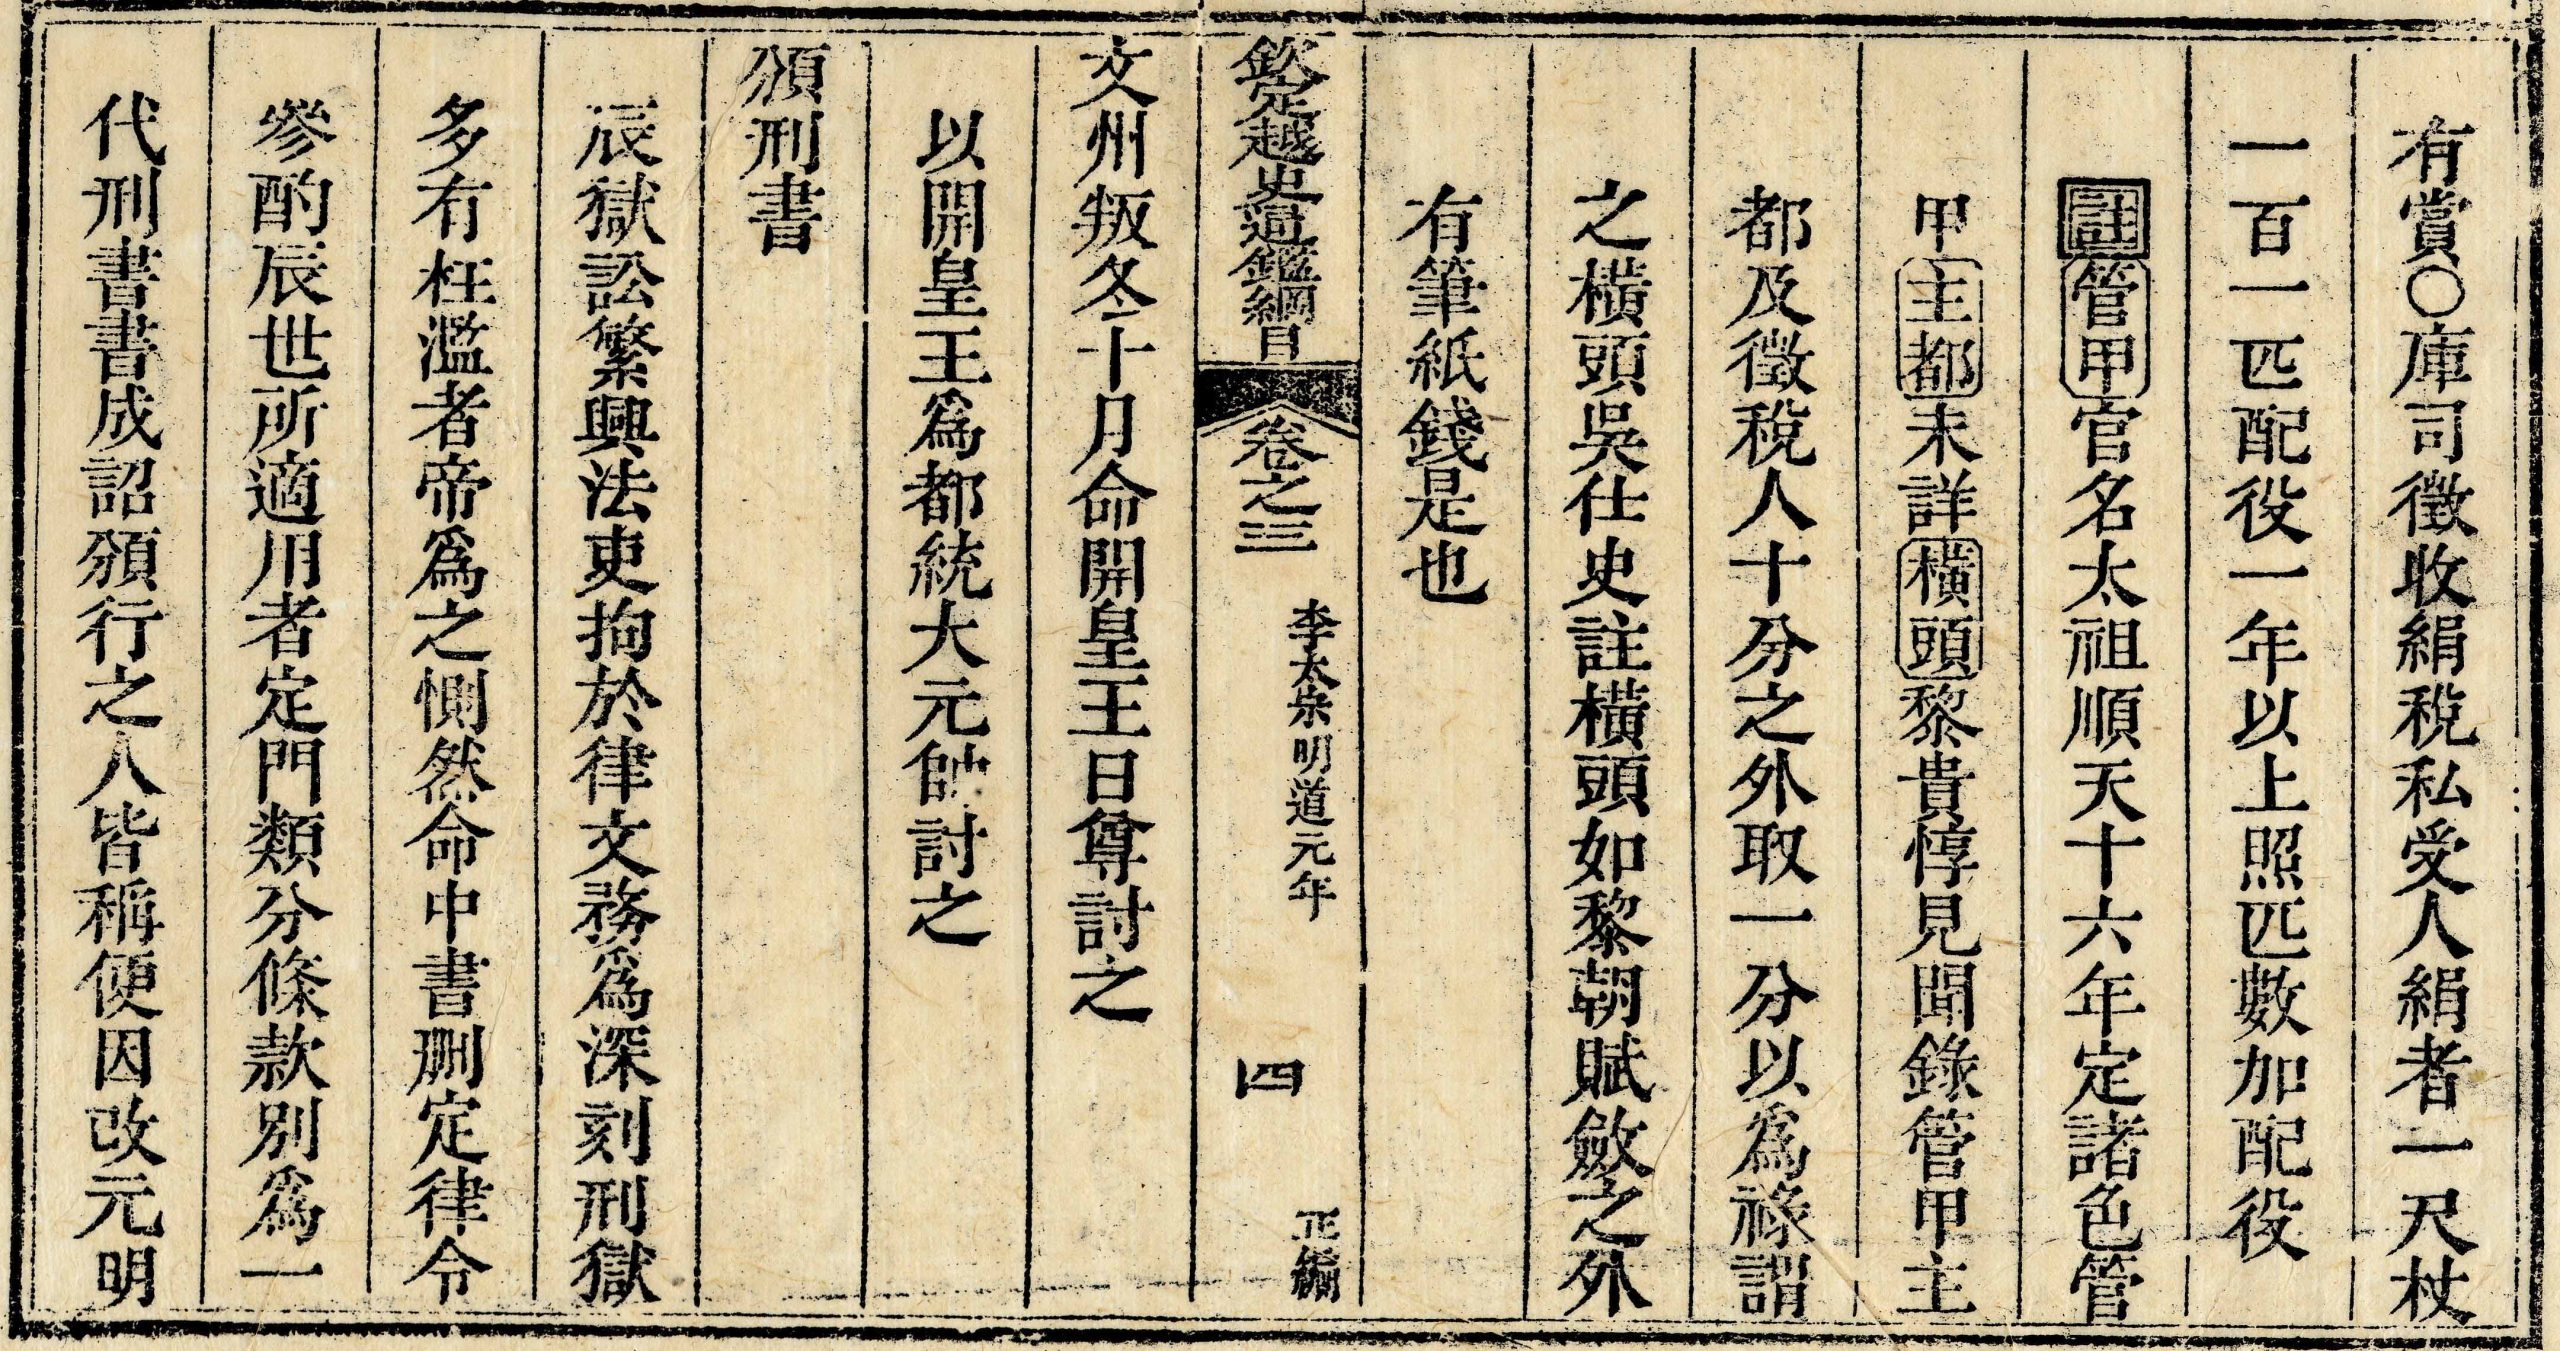 有賞〇庫司徵收絹稅私受人絹者一尺杖
一百一匹配役一年以上照匹數加配役
註管甲官名太祖順天十六年定諸色管
甲主都未詳橫頭黎貴惇見聞錄管甲主
都及徵稅人十分之外取一分以爲祿謂
之橫頭吳仕史註橫頭如黎朝賦斂之外
有筆紙錢是也
欽定越史通鑑綱目 卷之三 李太宗明道元年 四 正編
文州叛冬十月命開皇王日尊討之
以開皇王爲都統大元帥討之
頒刑書
辰獄訟繁興法吏拘於律文務爲深刻刑獄
多有枉濫者帝爲之惻然命中書删定律令
參酌辰世所適用者定門類分條款別爲一
代刑書書成詔頒行之人皆稱便因改元明